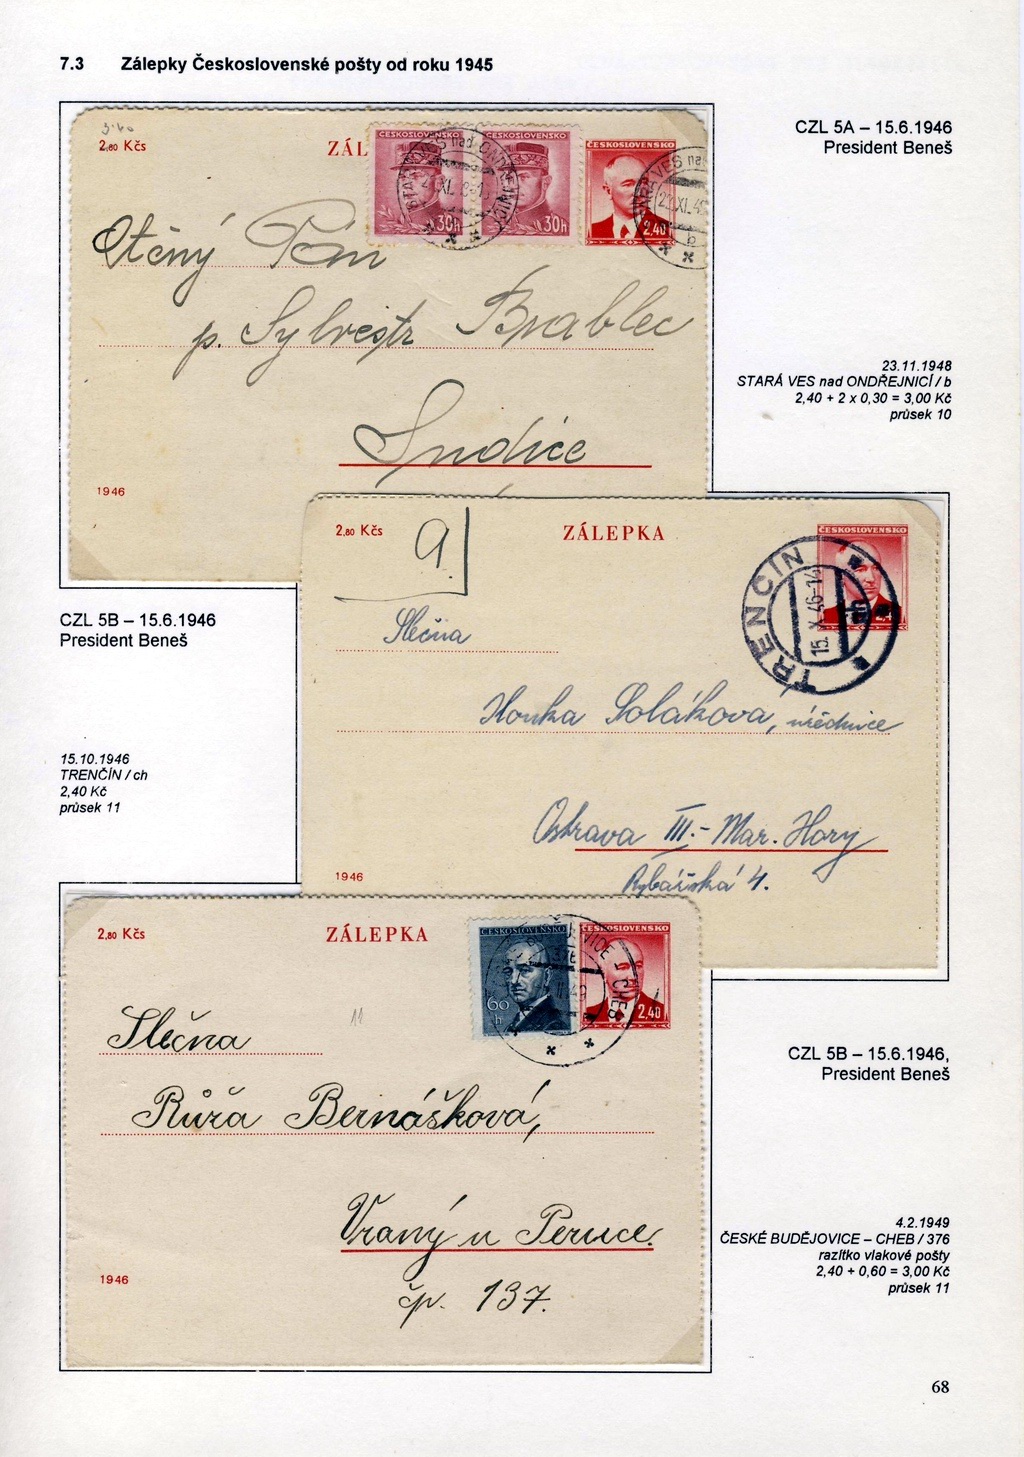 7.3 Zálepky Československé pošty od roku 1945
CZL 5A – 15.6.1946
President Beneš
2,80 Kčs
ZÁL
ČESKOSLOVENSKO
ČESKOSLOVENSKO
ČESKOSLOVENSKO
30h
30h
2,40
Ctěný Pán
p. Sylvestr Brablec
1946
23.11.1948
STARÁ VES nad ONDŘEJNICÍ / b
2,40 + 2 x 0,30 = 3,00 Kč
průsek 10
CZL 5B – 15.6.1946
President Beneš
15.10.1946
TRENČÍN / ch
2,40 Kč
průsek 11
2,80 Kčs
a
ZÁLEPKA
ČESKOSLOVENSKO
TRENČÍN
15. X. 46-14
ch
Slečna
Honka Solákova, úřednice
Ostrava III.- Mar. Hory
Rybářská 4.
1946
2,80 Kčs
ZÁLEPKA
ČESKOSLOVENSKO
ČESKOSLOVENSKO
60 h
2,40
376
CHEB
11
Slečna
Růža Bernášková,
Vraný u Peruce.
čp. 137.
1946
CZL 5B – 15.6.1946,
President Beneš
4.2.1949
ČESKÉ BUDĚJOVICE – CHEB / 376
razítko vlakové pošty
2,40 + 0,60 = 3,00 Kč
průsek 11
68